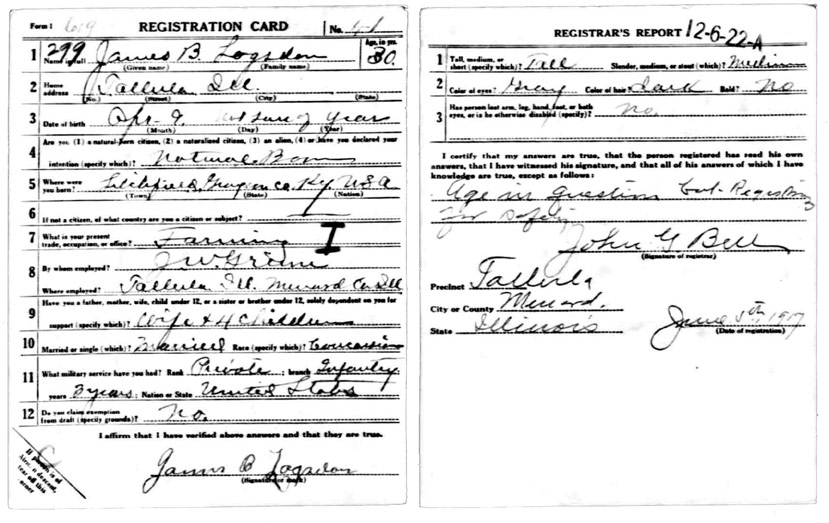 Form 1 619 REGISTRATION CARD No. 41
1 299 James B. Logsdon Age, in yrs. 30
Name in full (Given name) (Family name)
2 Home address Tallula Ill.
(No.) (Street) (City) (State)
3 Date of birth Apr. 9. not sure of year
(Month) (Day) (Year)
4 Are you (1) a natural-born citizen, (2) a naturalized citizen, (3) an alien, (4) or have you declared your
intention (specify which)? Natural Born
5 Where were you born? Litchfield Grayson co. Ky. USA
(Town) (State) (Nation)
6 If not a citizen, of what country are you a citizen or subject?
7 What is your present trade, occupation, or office? Farming I
8 By whom employed? J W Greene
Where employed? Tallula Ill. Menard Co. Ill
9 Have you a father, mother, wife, child under 12, or a sister or brother under 12, solely dependent on you for
support (specify which)? Wife & 4 Children
10 Married or single (which)? Married Race (specify which)? Caucasian
11 What military service have you had? Rank Private ; branch Infantry
years 3 years ; Nation or State United States
12 Do you claim exemption from draft (specify grounds)? No.
I affirm that I have verified above answers and that they are true.
James B Logsdon
(Signature or mark)
If person is of
African descent,
tear off this
corner
REGISTRAR'S REPORT 12-6-22-A
1 Tall, medium, or short (specify which)? Tall Slender, medium, or stout (which)? Medium
2 Color of eyes? Gray Color of hair? Dark Bald? No
3 Has person lost arm, leg, hand, foot, or both
eyes, or is he otherwise disabled (specify)? No.
I certify that my answers are true, that the person registered has read his own
answers, that I have witnessed his signature, and that all of his answers of which I have
knowledge are true, except as follows:
Age in question but Registering
for safety
John G Bell
(Signature of registrar)
Precinct Tallula
City or County Menard.
State Illinois June 5th 1917
(Date of registration)